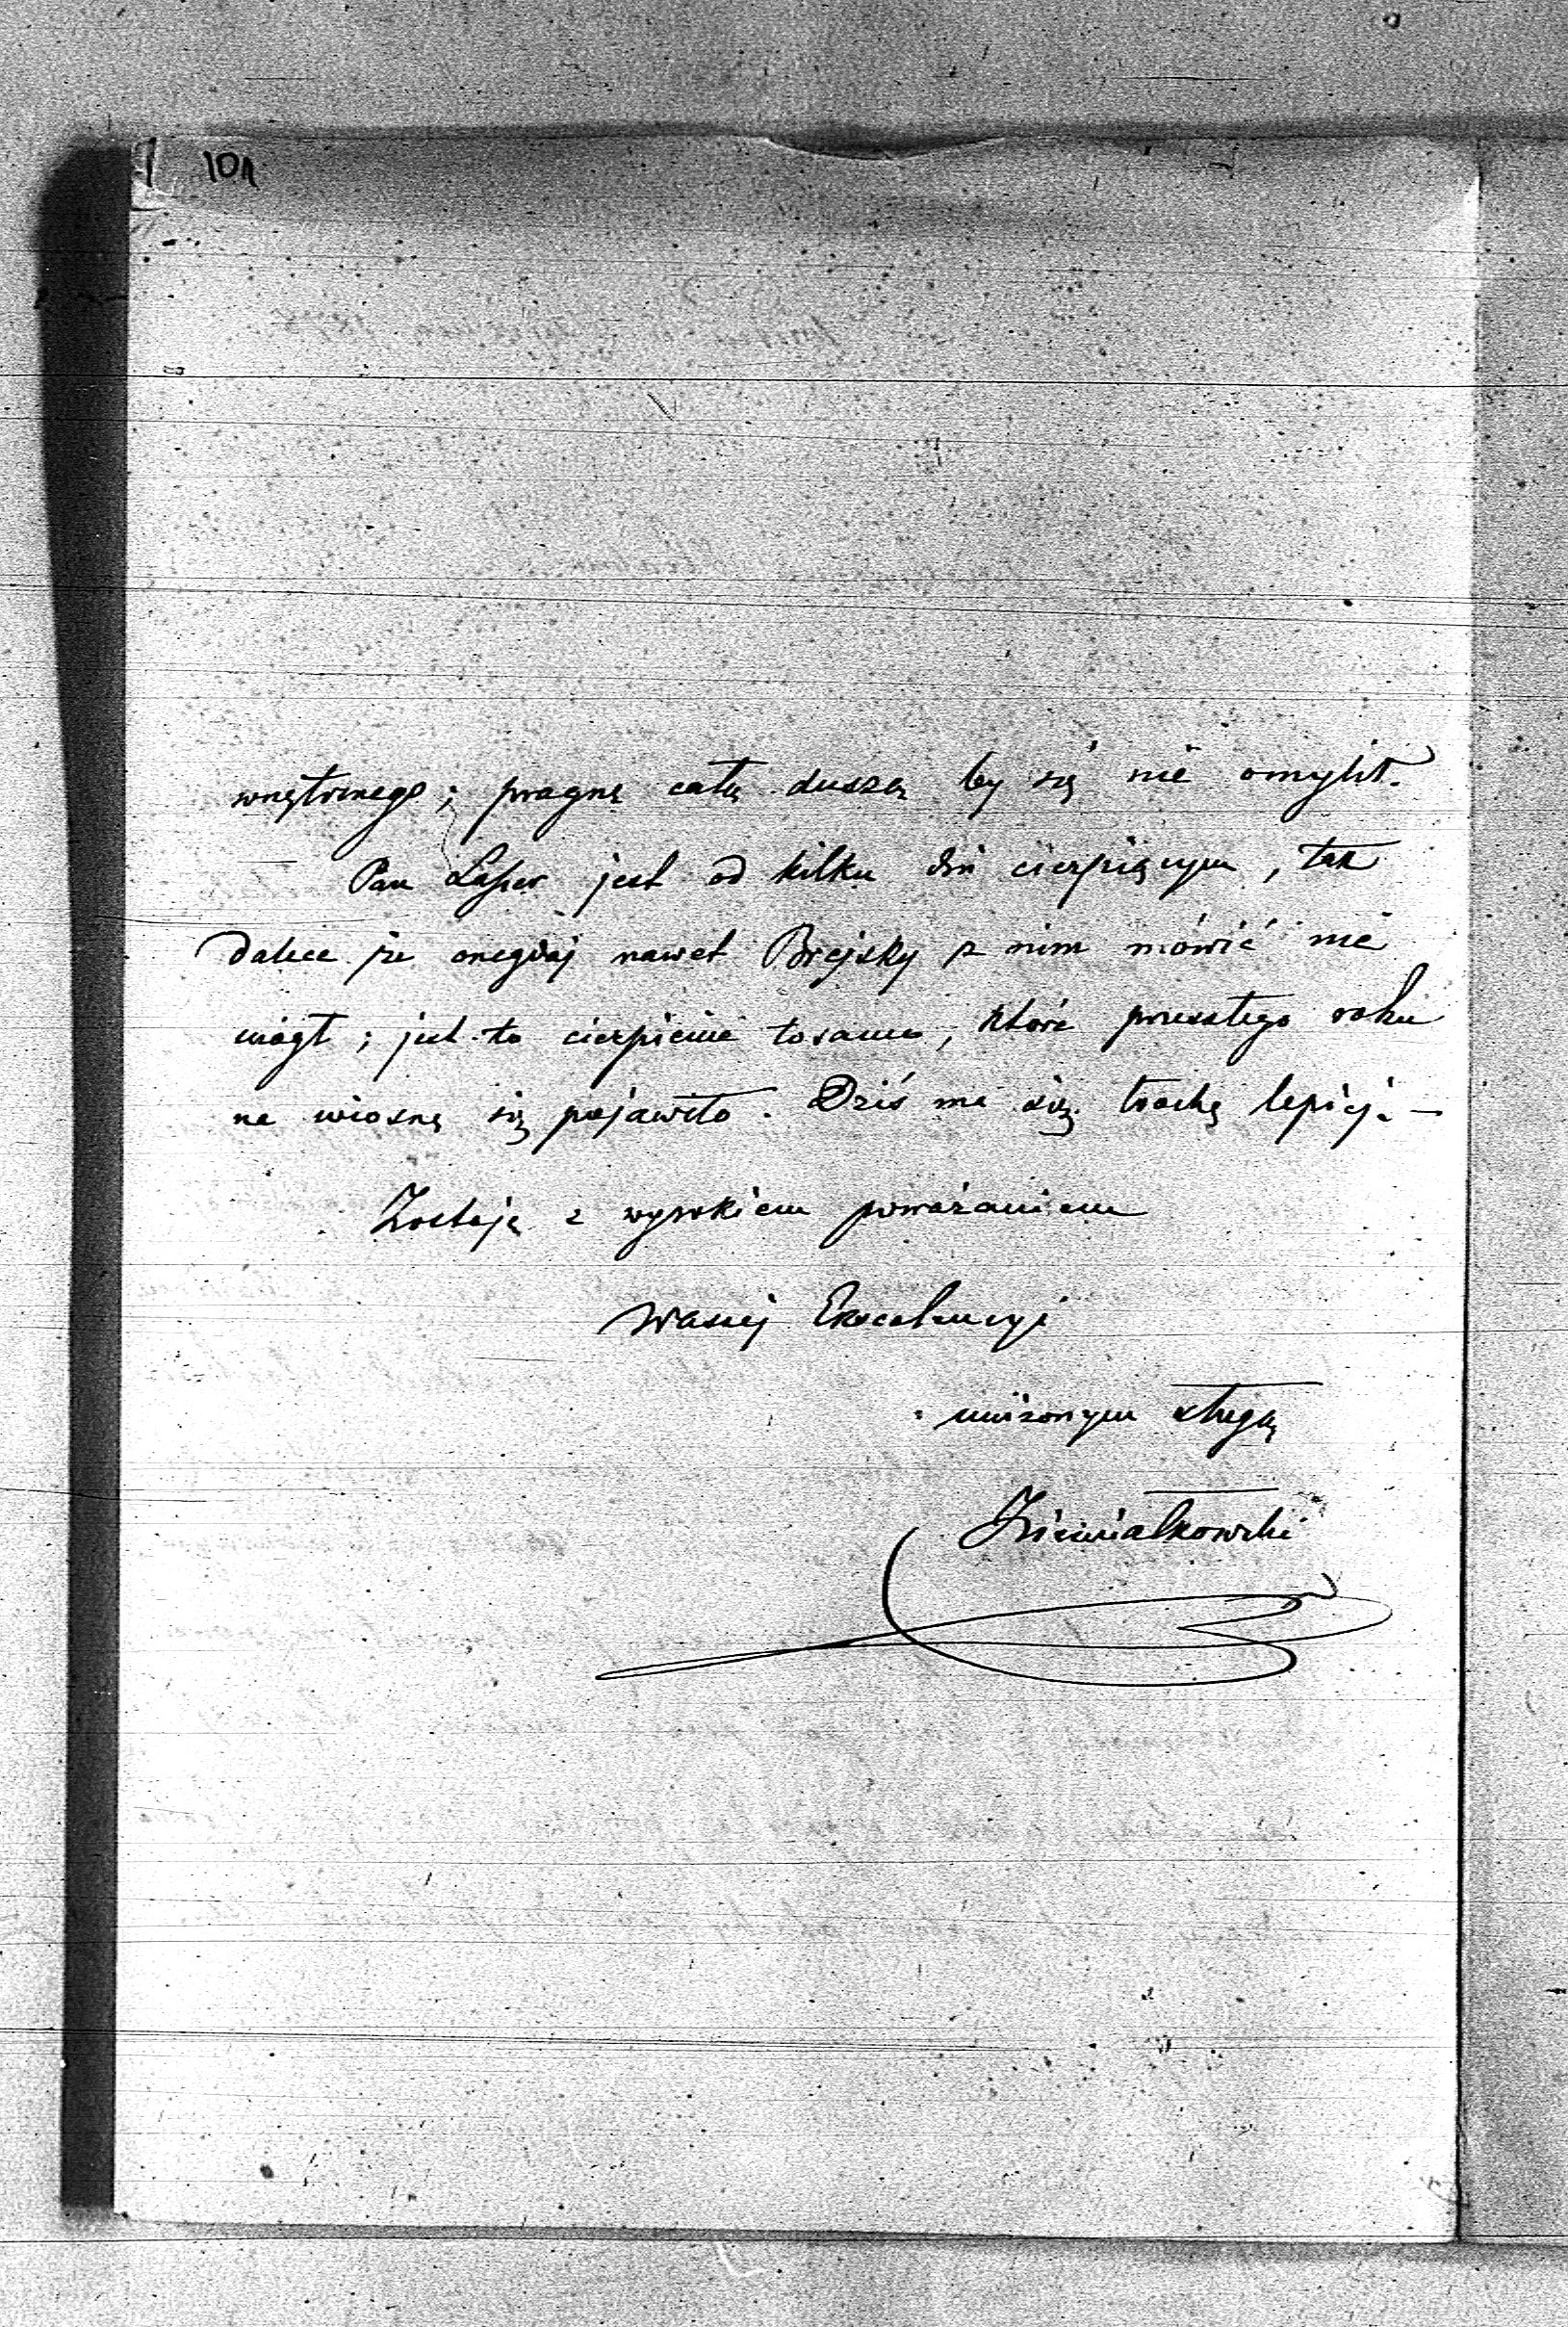 101
wnętrznego; pragnę całą duszą by się nie omylił.
Pan Lasser jest od kilku dni cierpiącym, tak
dalece że onegdaj nawet Brejsky z nim mówić nie
mógł; jest to cierpienie tosamo, które przeszłego roku
na wiosnę się pojawiło. Dziś ma się trochę lepiej. —
Zostaję z wysokiem poważaniem
Waszej Excelencyi
uniżonym sługą
Ziemiałkowski